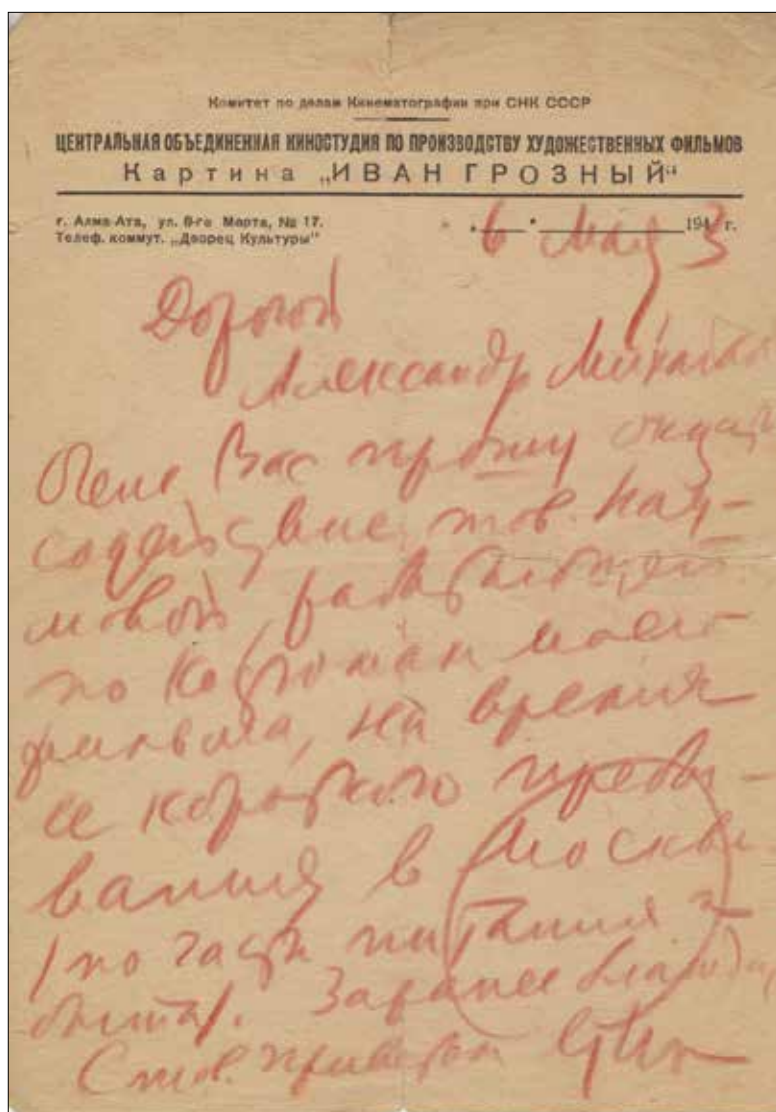 Комитет по делам Кинематографии при СНК СССР
ЦЕНТРАЛЬНАЯ ОБЪЕДИНЕННАЯ КИНОСТУДИЯ ПО ПРОИЗВОДСТВУ ХУДОЖЕСТВЕННЫХ ФИЛЬМОВ
Картина „ИВАН ГРОЗНЫЙ“
г. Алма-Ата, ул. 8-го Марта, № 17.
Телеф. коммут. „Дворец Культуры“
6 мая 1943 г.
Дорогой
Александр
Очень Вас прошу оказать
содействие тов. Нау-
мовой, работающей
по костюмам моего
фильма, на время
ее короткого пребы-
вания в Москве
(по части питания и
быта). Заранее
С тов. приветом